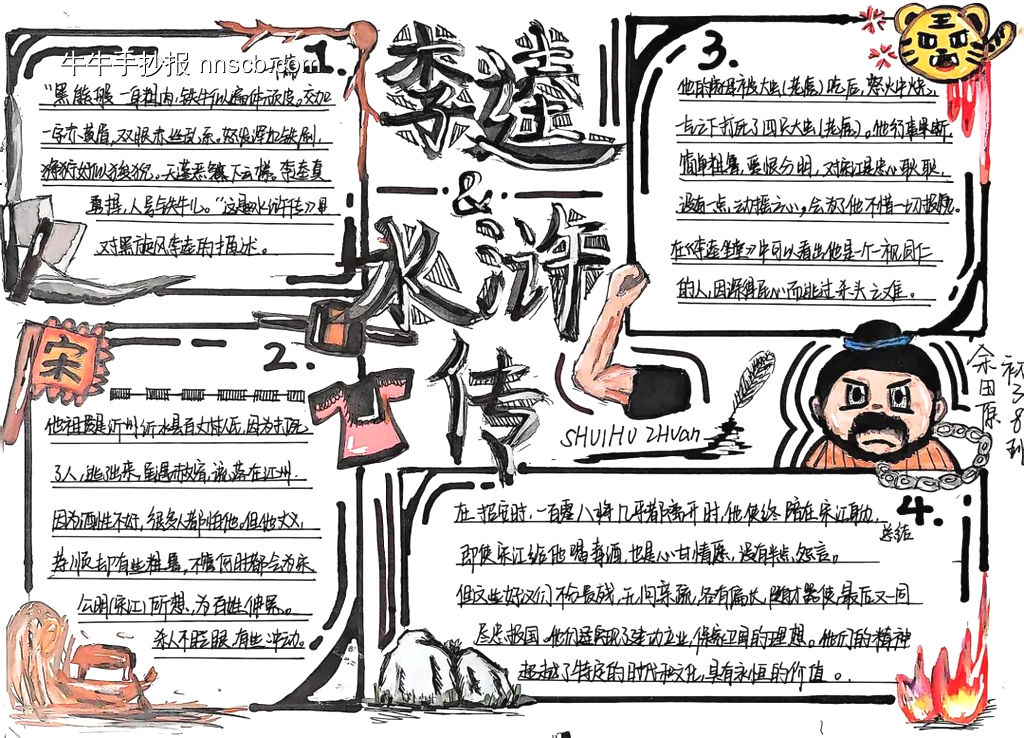 牛牛手抄报 nnscb.com
李逵
&
水浒
传
SHUIHU ZHUan
1.
"黑熊般一身粗肉，铁牛似遍体顽皮，交加
一字赤黄眉，双眼赤丝乱系。怒发浑如铁刷，
狰狞好似狻猊。天蓬恶煞下云梯。李逵真
勇悍，人号铁牛儿。"这是《水浒传》里
对黑旋风李逵的描述。
宋
2.
他祖居是沂州沂水县百丈村人氏，因为打死
了人，逃出来，虽遇赦宥，流落在江州.
因为酒性不好，很多人都怕他。但他大义，
孝顺却有些粗鲁，不管何时都会为宋
公明(宋江)所想，为百姓伸冤。
杀人不眨眼，有些冲动。
3.
王
他的母被大虫(老虎)吃后，怒火中烧，
一气之下打死了四只大虫(老虎)。他行事果断，
简单粗鲁，爱恨分明，对宋江是忠心耿耿，
没有一点动摇之心。会为了他不惜一切报仇。
在《李逵坐堂》中可以看出他是一个一视同仁
的人，因深得民心而逃过杀头之难。
初二8班
余田原
4.
总结
在招安时，一百零八将几乎都离开时，他使终陪在宋江身边，
即使宋江给他喝毒酒，也是心甘情愿，没有半点怨言。
但这些好汉们不分贵贱，无问亲疏，各有偏长，随才器使，最后又一同
尽忠报国。他们还实现了建功立业，保家卫国的理想。他们的精神
超越了特定的时代和文化，具有永恒的价值。